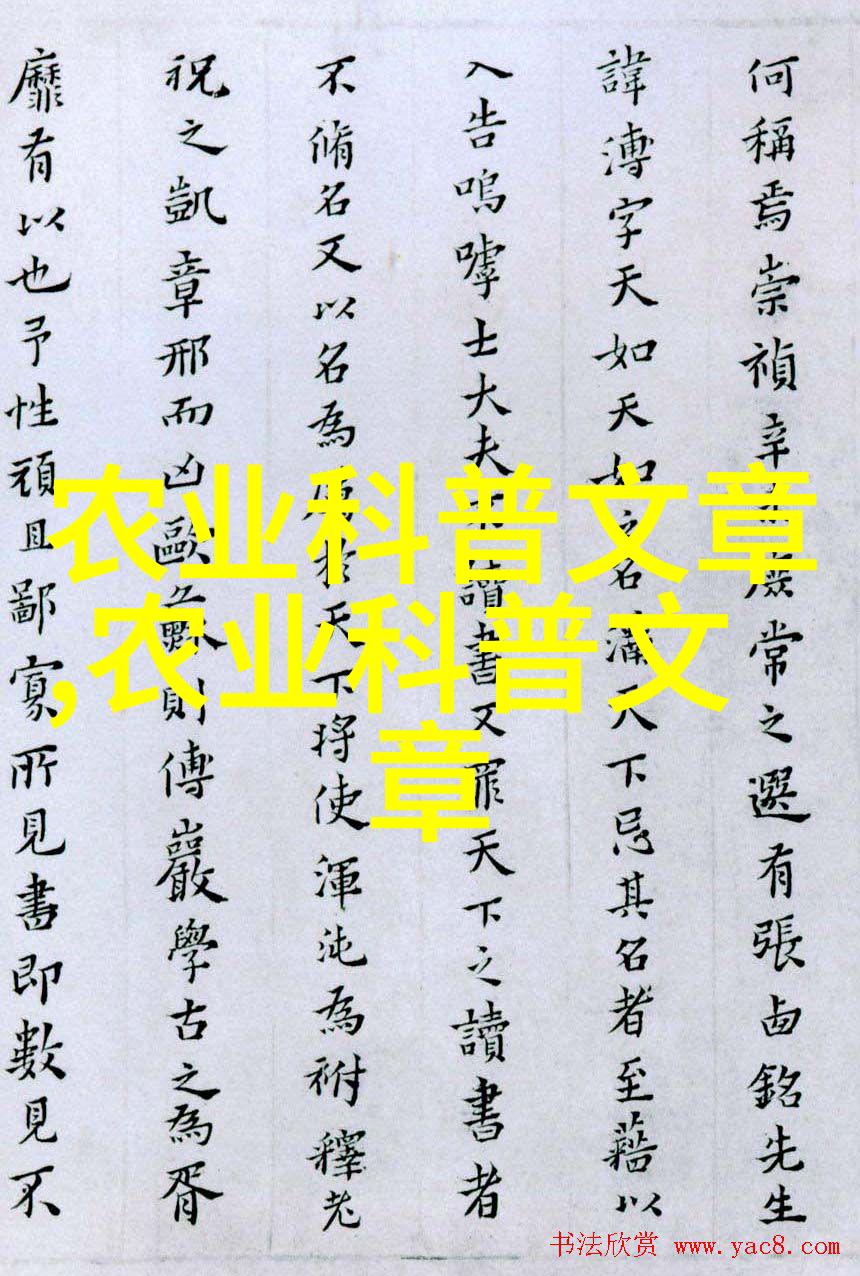 何稱焉崇禎辛未廣常之選有張卣銘先生
諱溥字天如天如之名滿天下忌其名者至藉以
入告嗚嘑士大夫不讀書又罪天下之讀書者
不脩名又以名為厲於天下将使渾沌為祔釋老
祝之凱章邢而凶歐蘇則傅巖學古之為胥
靡有以也予性頑且鄙寡所見書即數見不
农业科普文章
,农业科普文
章
书法欣赏 www.yac8.com